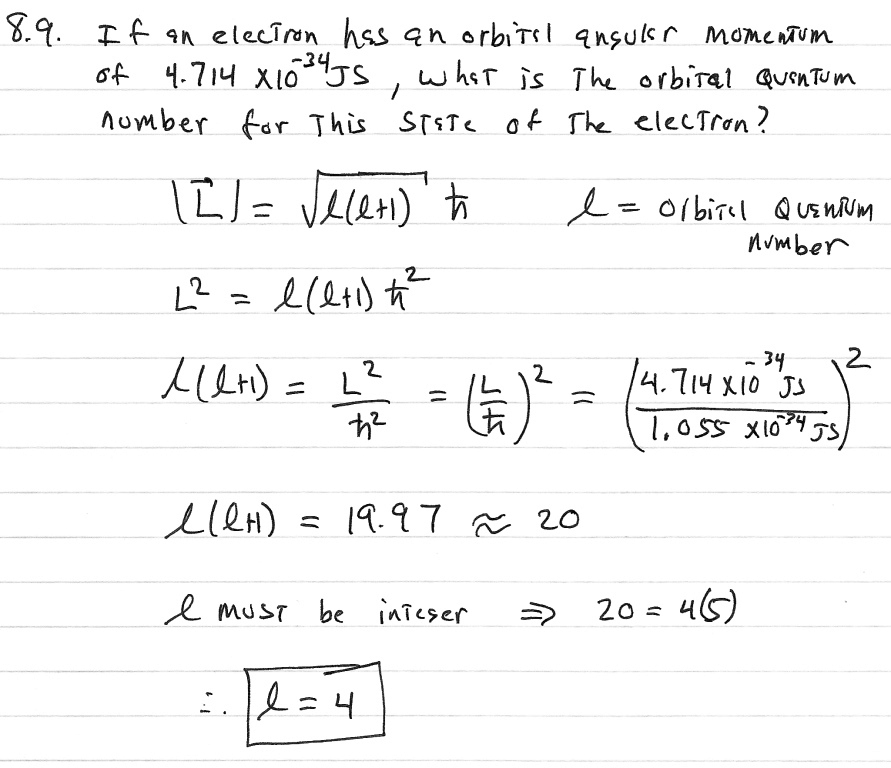 8.9. If an electron has an orbital angular momentum
of 4.714 x10^-34 JS, what is The orbital Quantum
number for This STaTe of The elecTron?
|L⃗| = √(l(l+1)) ħ    l = orbital Quantum
number
L² = l(l+1) ħ²
l(l+1) = L²/ħ² = (L/ħ)² = (4.714 x10^-34 JS / 1.055 x10^-34 JS)²
l(l+1) = 19.97 ≈ 20
l must be integer ⇒ 20 = 4(5)
∴ l = 4